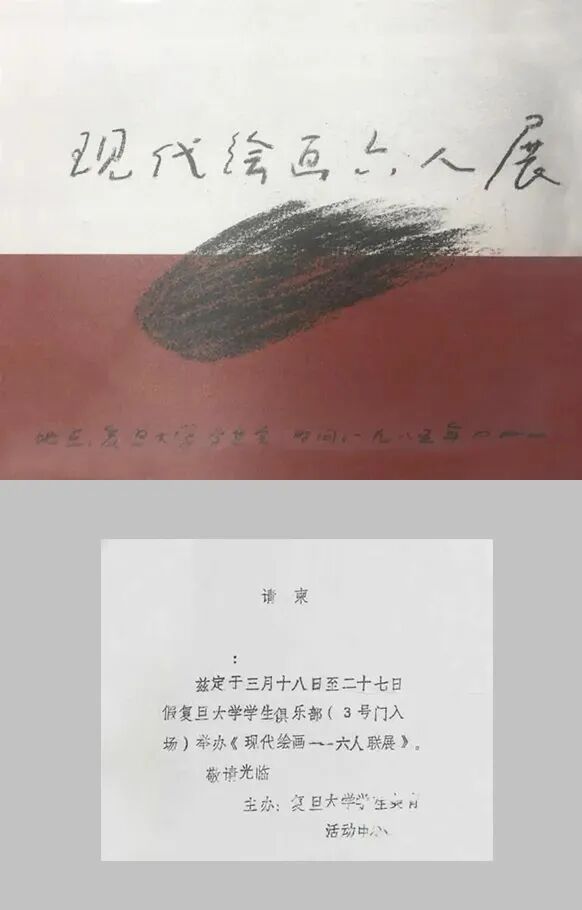 现代绘画六人展
地点:复旦大学 时间:一九八五年
请柬
:
兹定于三月十八日至二十七日
假复旦大学学生俱乐部(3号门入
场)举办《现代绘画一--六人联展》。
敬请光临
主办:复旦大学学生
活动中心